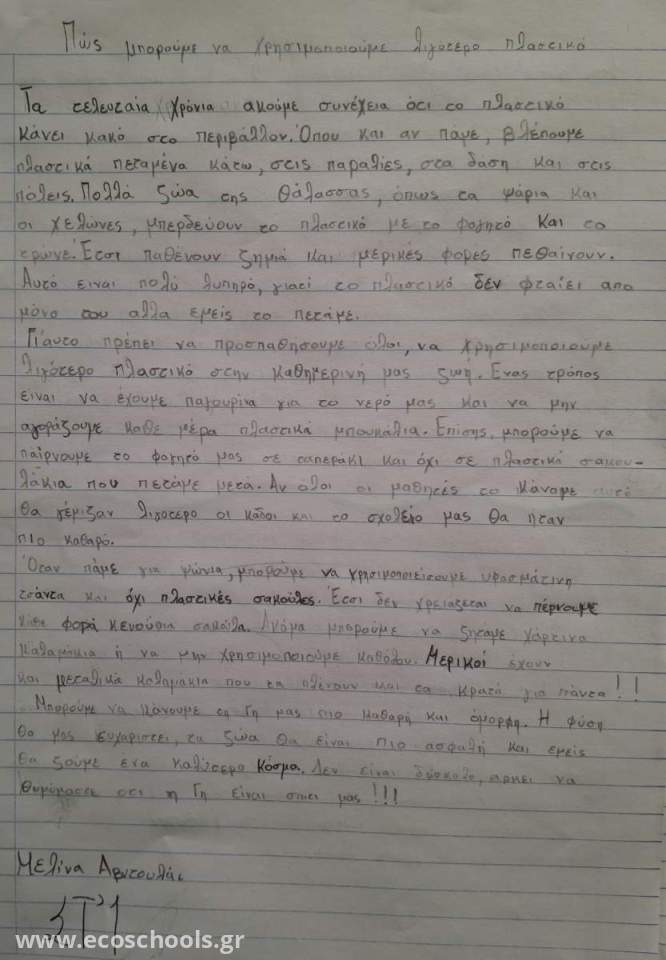 Πώς μπορούμε να χρησιμοποιούμε λιγότερο πλαστικό
Τα τελευταία χρόνια ακούμε συνέχεια ότι το πλαστικό
κάνει κακό στο περιβάλλον. Όπου και αν πάμε, βλέπουμε
πλαστικά πεταμένα κάτω, στις παραλίες, στα δαση και στις
πόλεις. Πολλά ζώα της θάλασσας, όπως τα ψάρια και
οι χελώνες, μπερδεύουν το πλαστικό με το φαγητό και το
τρώνε. Έτσι παθένουν ζημιά και μερικές φορες πεθαίνουν.
Αυτό ειναι πολύ λυπηρό, γιατί το πλαστικό δέν φταίει απο
μόνο του αλλα εμείς το πετάμε.
Γι'αυτο πρέπει να προσπαθήσουμε όλοι, να χρησιμοποιούμε
λιγότερο πλαστικό στην καθημερινή μας ζωή. Ενας τρόπος
είναι να έχουμε παγουρίνα για το νερό μας και να μην
αγοράζουμε καθε μέρα πλαστικά μπουκάλια. Επίσης, μπορούμε να
παίρνουμε το φαγητό μας σε ταπεράκι και όχι σε πλαστικά σακου-
λάκια που πετάμε μετά. Αν όλοι οι μαθητές το κάναμε αυτό
θα γέμιζαν λιγοτερο οι κάδοι και το σχολείο μας θα ηταν
πιο καθαρό.
Όταν πάμε για ψώνια, μπορούμε να χρησιμοποιείσουμε υφασμάτινη
τσάντα και όχι πλαστικές σακούλες. Έτσι δεν χρειαζεται να πέρνουμε
κάθε φορά κενούρια σακούλα. Ακόμα μπορούμε να ζητάμε χάρτινα
καλαμάκια ή να μην χρησιμοποιούμε καθόλου. Μερικοί έχουν
και μεταλικά καλαμάκια που τα πλένουν και τα κρατά για πάντα!!
Μπορούμε να κάνουμε τη Γη μας πιο καθαρή και όμορφη. Η φύση
θα μας ευχαριστεί, τα ζώα θα είναι πιο ασφαλή και εμείς
θα ζούμε ενα καλύτερο κόσμο. Δεν είναι δύσκολο, αρκει να
θυμόμαστε οτι η Γη είναι σπιτι μας!!!
Μελίνα
ΣΤ'1
www.ecoschools.gr